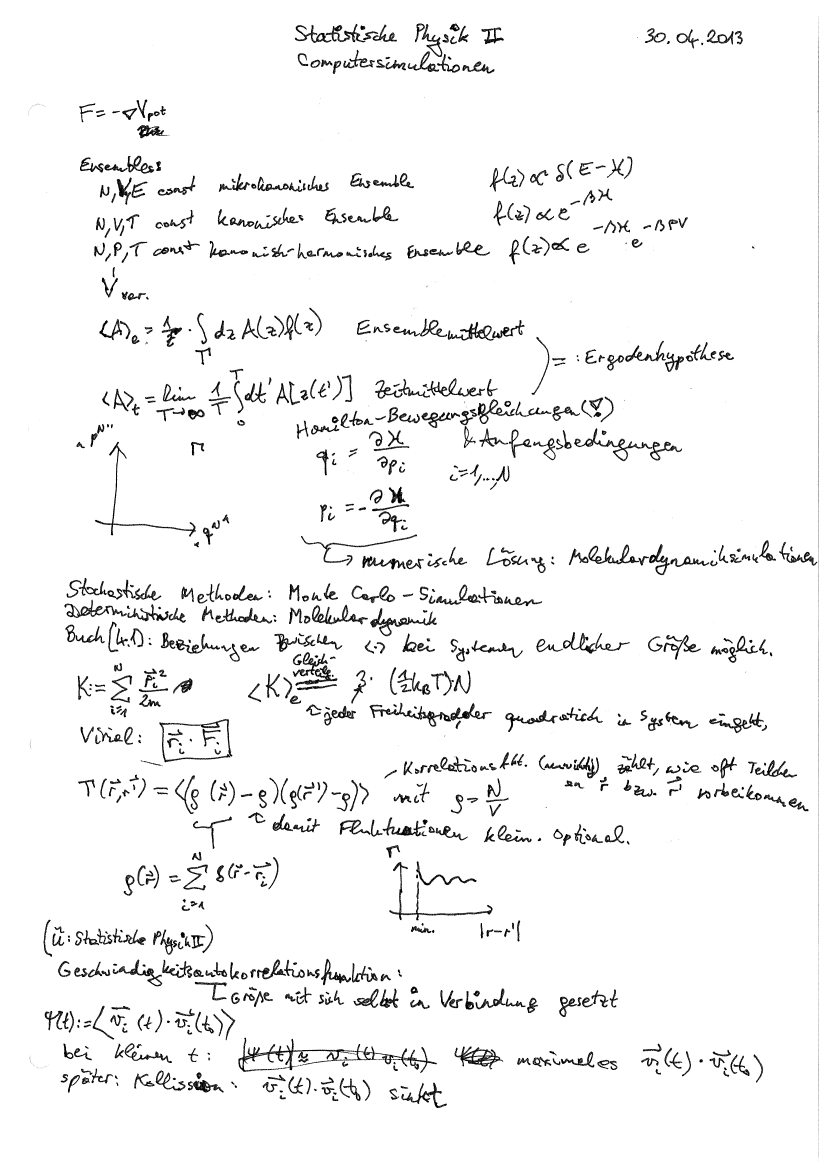 Statistische Physik II 30.04.2013
Computersimulationen
F = -∇V_pot
Ensembles:
N,V,E const mikrokanonisches Ensemble f(z) ∝ δ(E-H)
N,V,T const kanonisches Ensemble f(z) ∝ e^{-βH}
N,P,T const kanonisch-harmonisches Ensemble f(z) ∝ e^{-βH} e^{-βPV}
V var.
<A>_e = 1/z · ∫_Γ dz A(z) f(z) Ensemblemittelwert
= : Ergodenhypothese
<A>_t = lim_{T→∞} 1/T ∫_0^T dt' A[z(t')] Zeitmittelwert
Hamilton-Bewegungsgleichungen (!)
"p^N" Γ q_i = ∂H/∂p_i & Anfangsbedingungen
i=1,...,N
p_i = -∂H/∂q_i
"q^N"
↳ numerische Lösung: Molekulardynamiksimulationen
Stochastische Methoden: Monte Carlo-Simulationen
Deterministische Methoden: Molekulardynamik
Buch (4.1): Beziehungen zwischen <·> bei Systemen endlicher Größe möglich.
K := Σ_{i=1}^N p⃗_i²/2m <K>_e =^{Gleichverteilg.} 3 · (½ k_B T) N
↑ jeder Freiheitsgrad, der quadratisch in System eingeht,
Virial: r⃗_i · F⃗_i
Γ(r⃗,r⃗') = <(ρ(r⃗)-ρ)(ρ(r⃗')-ρ)> mit ρ = N/V
Korrelationsfkt. zählt, wie oft Teilchen an r⃗ bzw. r⃗' vorbeikommen
↑ damit Fluktuationen klein. Optional.
ρ(r⃗) = Σ_{i=1}^N δ(r⃗-r⃗_i)
Γ
min. |r-r'|
(Ü: Statistische Physik II)
Geschwindigkeitsautokorrelationsfunktion:
Größe mit sich selbst in Verbindung gesetzt
Ψ(t) := <v⃗_i(t) · v⃗_i(t_0)>
bei kleinen t: maximales v⃗_i(t) · v⃗_i(t_0)
später: Kollission: v⃗_i(t) · v⃗_i(t_0) sinkt